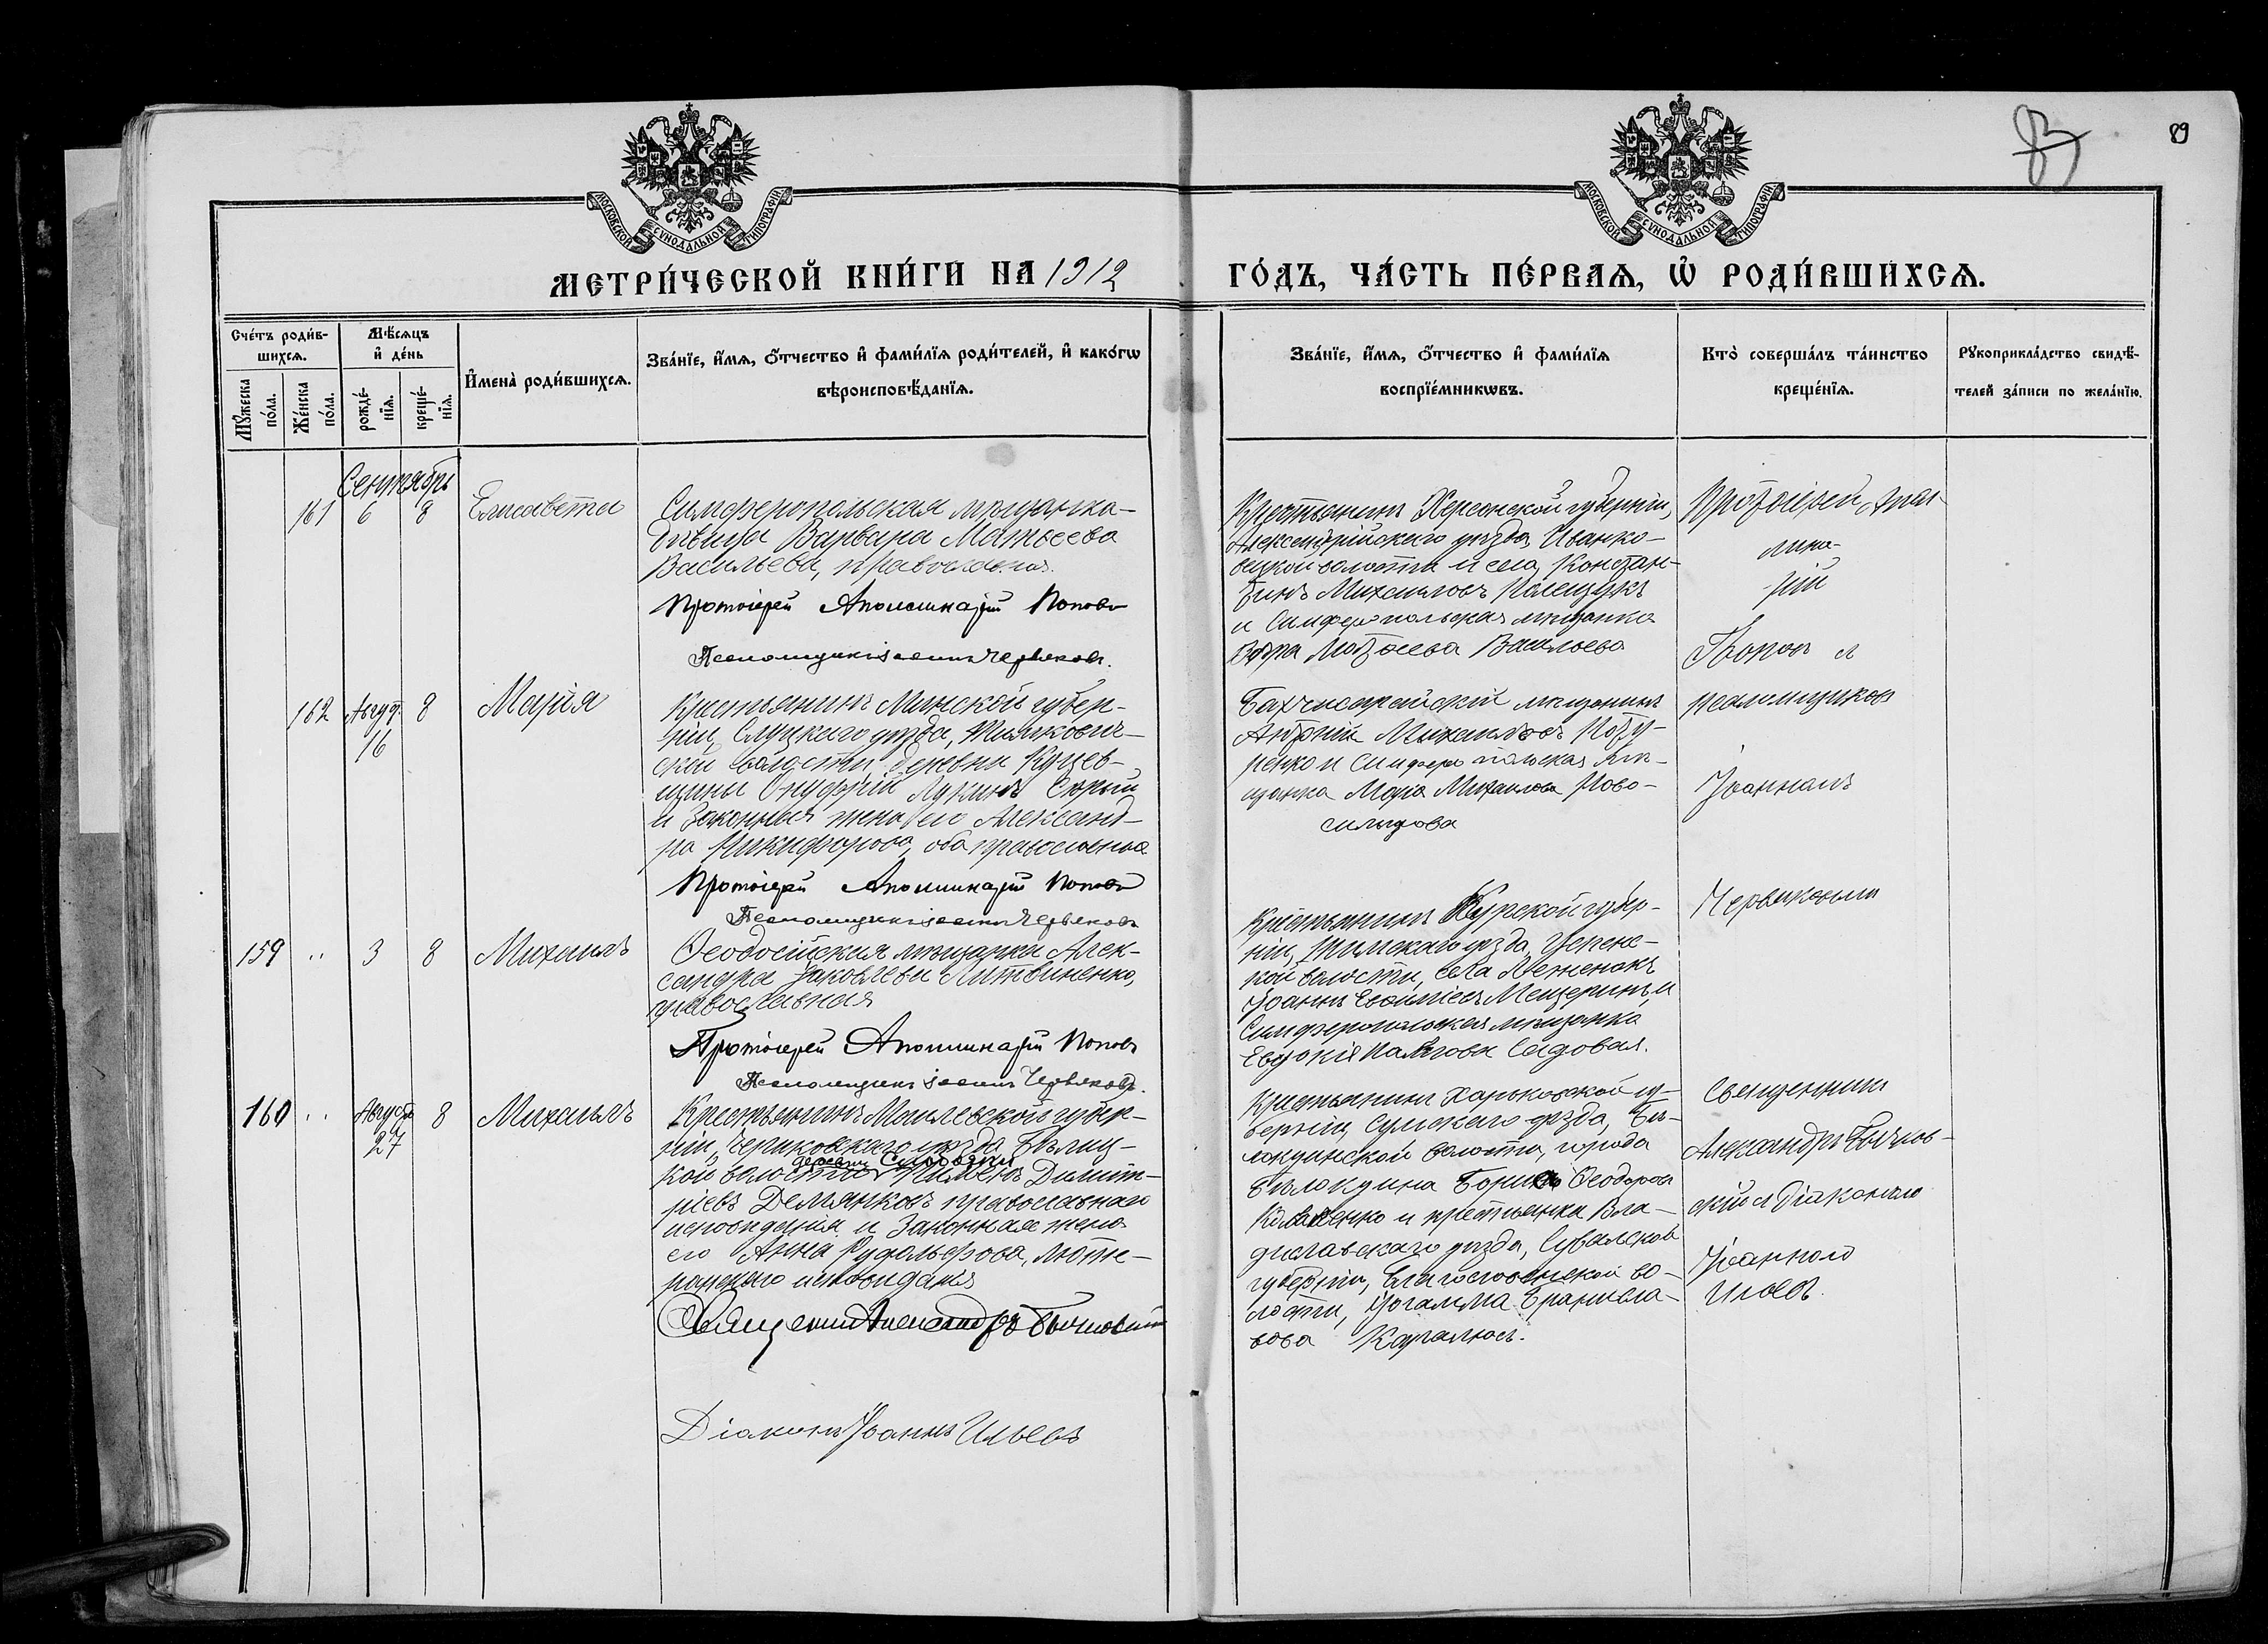 89
МОСКОВСКОЙ СѴНОДАЛЬНОЙ ТИПОГРАФІИ
МОСКОВСКОЙ СѴНОДАЛЬНОЙ ТИПОГРАФІИ
МЕТРИ́ЧЕСКОЙ КНИ́ГИ НА 1912 ГО́ДЪ, ЧА́СТЬ ПЕ́РВАѦ, Ѡ҆ РОДИ́ВШИХСѦ.
Сче́тъ роди́в-
шихсѧ.
Мꙋ́жеска
по́ла.
Же́нска
по́ла.
Мѣ́сѧцъ
и҆ де́нь
рожде́-
нїѧ.
креще́-
нїѧ.
И҆мена̀ роди́вшихсѧ.
Зва́нїе, и҆́мѧ, ѻ҆́тчество и҆ фами́лїѧ роди́телей, и҆ како́гѡ
вѣроисповѣ́данїѧ.
Зва́нїе, и҆́мѧ, ѻ҆́тчество и҆ фами́лїѧ
воспрїе́мникѡвъ.
Кто̀ соверша́лъ та́инство
креще́нїѧ.
Рꙋкоприкла́дство свидѣ́-
телей за́писи по жела́нїю.
Сентябрь
161 6 8 Елисавета
Симферопольская мѣщанка-
дѣвица Варвара Матѳеева
Васильева, православная.
Протоіерей Аполлинарій Поповъ
Псаломщикъ Іоаннъ Червяковъ.
Крестьянинъ Херсонской губерніи,
Александрійскаго уѣзда, Иванко-
вецкой волости и села, Констан-
тинъ Михаиловъ Полещукъ
и Симферопольская мѣщанка
Вѣра Матѳеева Васильева
Протоіерей Апол-
лина-
рій
Поповъ и
псаломщиковъ
Іоанномъ
Червяковымъ
162 Август. 16 8 Марія
Крестьянинъ Минской губер-
ніи, Слуцкаго уѣзда,
ской волости, деревни
Онуфрій Лукинъ Скрый
и законная жена его Александ-
ра Никифорова, оба православные
Протоіерей Аполлинарій Поповъ
Псаломщикъ Іоаннъ Червяковъ
Бахчисарайскій мѣщанинъ
Антоній Михаиловъ
и Симферопольская мѣ-
щанка Марія Михаилова Ново-
сильцова
159 " 3 8 Михаилъ
Ѳеодосійская мѣщанка Алек-
сандра Яковлева Литвиненко,
православная
Протоіерей Аполлинарій Поповъ
Псаломщикъ Іоаннъ Червяковъ.
Крестьянинъ Курской губер-
ніи, Тимскаго уѣзда,
кой волости, села
Іоаннъ Евѳиміевъ Мещеринъ, и
Симферопольская мѣщанка
Евдокія Павлова Садовая.
160 " Августъ 27 8 Михаилъ
Крестьянинъ Могилевской губер-
ніи, Чериковскаго уѣзда, Бѣлиц-
деревни Слободки
кой волости Димит-
ріевъ Демьянковъ православнаго
исповѣданія и законная жена
его Анна Рудольфова, люте-
ранскаго исповѣданія
Священникъ Александръ Бычковскій
Діаконъ Іоаннъ Ильевъ
Крестьянинъ Харьковской гу-
берніи, Сумскаго уѣзда, Бѣ-
локуинской волости, города
Борисъ Ѳеодоровъ
и крестьянка Вла-
диславскаго уѣзда, Сувалской
губерніи, Благословенской во-
лости,
вова
Священникъ
Александръ Бычков-
скій и Діаконъ
Іоанномъ
Ильевъ.